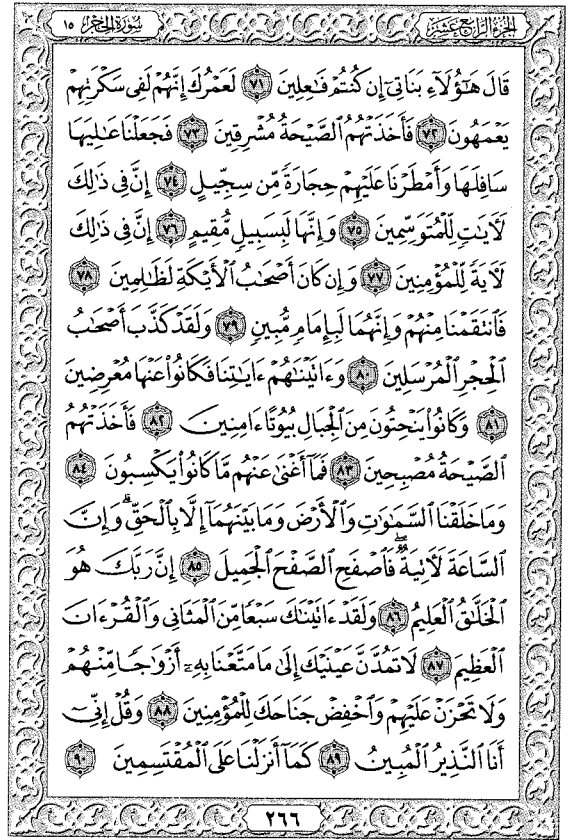 سُورَةُ الحِجْرِ ١٥ الجُزءُ الرَّابِعَ عَشَرَ
قَالَ هَٰٓؤُلَآءِ بَنَاتِيٓ إِن كُنتُمۡ فَٰعِلِينَ ٧١ لَعَمۡرُكَ إِنَّهُمۡ لَفِي سَكۡرَتِهِمۡ
يَعۡمَهُونَ ٧٢ فَأَخَذَتۡهُمُ ٱلصَّيۡحَةُ مُشۡرِقِينَ ٧٣ فَجَعَلۡنَا عَٰلِيَهَا
سَافِلَهَا وَأَمۡطَرۡنَا عَلَيۡهِمۡ حِجَارَةٗ مِّن سِجِّيلٍ ٧٤ إِنَّ فِي ذَٰلِكَ
لَأٓيَٰتٖ لِّلۡمُتَوَسِّمِينَ ٧٥ وَإِنَّهَا لَبِسَبِيلٖ مُّقِيمٍ ٧٦ إِنَّ فِي ذَٰلِكَ
لَأٓيَةٗ لِّلۡمُؤۡمِنِينَ ٧٧ وَإِن كَانَ أَصۡحَٰبُ ٱلۡأَيۡكَةِ لَظَٰلِمِينَ ٧٨
فَٱنتَقَمۡنَا مِنۡهُمۡ وَإِنَّهُمَا لَبِإِمَامٖ مُّبِينٖ ٧٩ وَلَقَدۡ كَذَّبَ أَصۡحَٰبُ
ٱلۡحِجۡرِ ٱلۡمُرۡسَلِينَ ٨٠ وَءَاتَيۡنَٰهُمۡ ءَايَٰتِنَا فَكَانُواْ عَنۡهَا مُعۡرِضِينَ
٨١ وَكَانُواْ يَنۡحِتُونَ مِنَ ٱلۡجِبَالِ بُيُوتًا ءَامِنِينَ ٨٢ فَأَخَذَتۡهُمُ
ٱلصَّيۡحَةُ مُصۡبِحِينَ ٨٣ فَمَآ أَغۡنَىٰ عَنۡهُم مَّا كَانُواْ يَكۡسِبُونَ ٨٤
وَمَا خَلَقۡنَا ٱلسَّمَٰوَٰتِ وَٱلۡأَرۡضَ وَمَا بَيۡنَهُمَآ إِلَّا بِٱلۡحَقِّۗ وَإِنَّ
ٱلسَّاعَةَ لَأٓتِيَةٞۖ فَٱصۡفَحِ ٱلصَّفۡحَ ٱلۡجَمِيلَ ٨٥ إِنَّ رَبَّكَ هُوَ
ٱلۡخَلَّٰقُ ٱلۡعَلِيمُ ٨٦ وَلَقَدۡ ءَاتَيۡنَٰكَ سَبۡعٗا مِّنَ ٱلۡمَثَانِي وَٱلۡقُرۡءَانَ
ٱلۡعَظِيمَ ٨٧ لَا تَمُدَّنَّ عَيۡنَيۡكَ إِلَىٰ مَا مَتَّعۡنَا بِهِۦٓ أَزۡوَٰجٗا مِّنۡهُمۡ
وَلَا تَحۡزَنۡ عَلَيۡهِمۡ وَٱخۡفِضۡ جَنَاحَكَ لِلۡمُؤۡمِنِينَ ٨٨ وَقُلۡ إِنِّيٓ
أَنَا ٱلنَّذِيرُ ٱلۡمُبِينُ ٨٩ كَمَآ أَنزَلۡنَا عَلَى ٱلۡمُقۡتَسِمِينَ ٩٠
٢٦٦